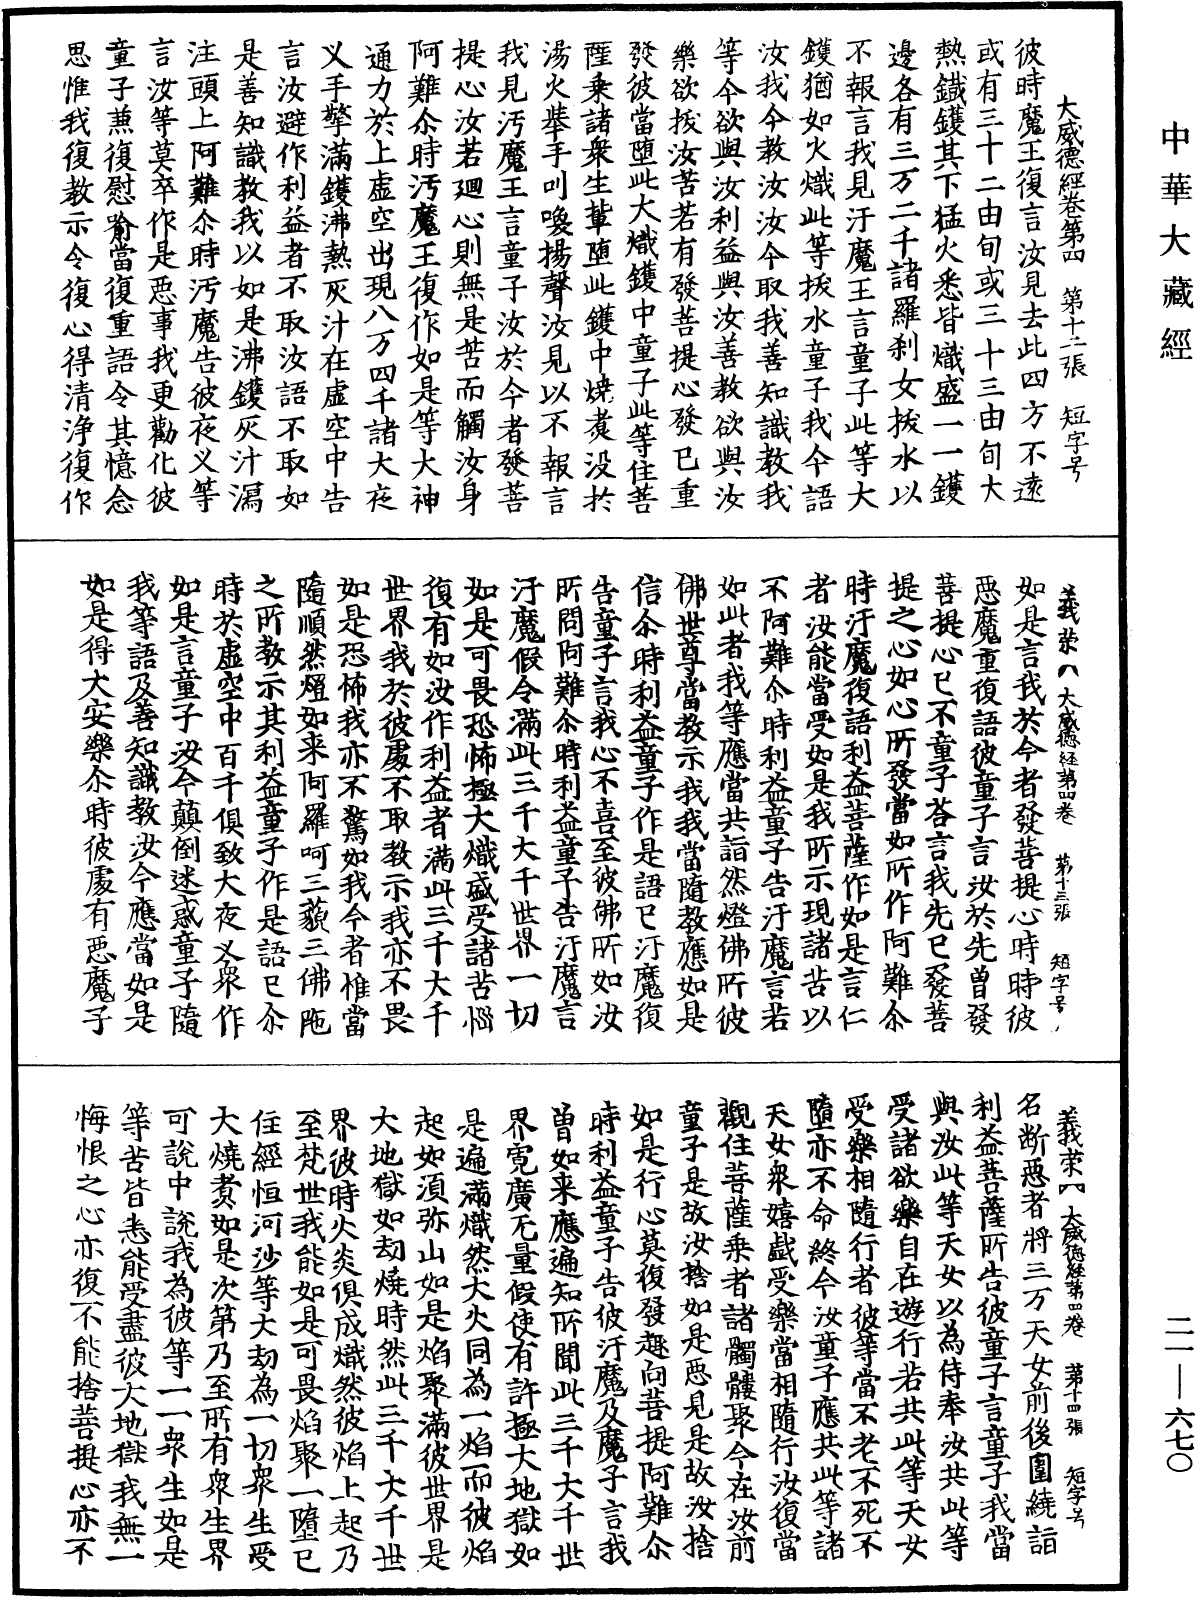 中華大藏經
大威德經卷第四　第十二張　短字号
彼時魔王復言汝見去此四方不遠
或有三十二由旬或三十三由旬大
熱鐵鑊其下猛火悉皆熾盛一一鑊
邊各有三万二千諸羅刹女拔水以
不報言我見汙魔王言童子此等大
鑊猶如火熾此等拔水童子我今語
汝我今教汝汝今取我善知識教我
等今欲與汝利益與汝善教欲與汝
樂欲拔汝苦若有發菩提心發已重
發彼當墮此大熾鑊中童子此等住菩
薩乘諸衆生輩墮此鑊中燒煑没於
湯火舉手叫喚揚聲汝見以不報言
我見汚魔王言童子汝於今者發菩
提心汝若迴心則無是苦而觸汝身
阿難尒時汚魔王復作如是等大神
通力於上虛空出現八万四千諸大夜
义手擎滿鑊沸熱灰汁在虛空中告
言汝避作利益者不取汝語不取如
是善知識教我以如是沸鑊灰汁瀉
注頭上阿難尒時汚魔告彼夜义等
言汝等莫卒作是惡事我更勸化彼
童子兼復慰喻當復重語令其憶念
思惟我復教示令復心得清淨復作
義荣（八　大威德经第四卷　苐十三張　短字号
如是言我於今者發菩提心時時彼
惡魔重復語彼童子言汝於先曾發
菩提心已不童子荅言我先已發菩
提之心如心所發當如所作阿難尒
時汙魔復語利益菩薩作如是言仁
者汝能當受如是我所示現諸苦以
不阿難尒時利益童子告汙魔言若
如此者我等應當共詣然燈佛所彼
佛世尊當教示我我當隨教應如是
信尒時利益童子作是語已汙魔復
告童子言我心不喜至彼佛所如汝
所問阿難尒時利益童子告汙魔言
汙魔假令滿此三千大千世界一切
如是可畏恐怖極大熾盛受諸苦惱
復有如汝作利益者滿此三千大千
世界我於彼處不取教示我亦不畏
如是恐怖我亦不驚如我今者惟當
隨順然燈如来阿羅呵三藐三佛陁
之所教示其利益童子作是語已尒
時於虛空中百千俱致大夜义衆作
如是言童子汝今顛倒迷惑童子隨
我等語及善知識教汝今應當如是
如是得大安樂尒時彼處有惡魔子
義荣（　大威德经第四卷　第十四張　短字号
名断惡者將三万天女前後圍繞詣
利益菩薩所告彼童子言童子我當
與汝此等天女以為侍奉汝共此等
受諸欲樂自在遊行若共此等天女
受樂相隨行者彼等當不老不死不
墮亦不命終今汝童子應共此等諸
天女衆嬉戲受樂當相隨行汝復當
觀住菩薩乘者諸髑髏聚今在汝前
童子是故汝捨如是惡見是故汝捨
如是行心莫復發趣向菩提阿難尒
時利益童子告彼汙魔及魔子言我
曽如来應遍知所聞此三千大千世
界寛廣无量假使有許極大地獄如
是遍滿熾然大火同為一焰而彼焰
起如須弥山如是焰聚滿彼世界是
大地獄如劫燒時然此三千大千世
界彼時火炎俱成熾然彼焰上起乃
至梵世我能如是可畏焰聚一墮已
住經恒河沙等大劫為一切衆生受
大燒煑如是次第乃至所有衆生界
可說中說我為彼等一一衆生如是
等苦皆悉能受盡彼大地獄我無一
悔恨之心亦復不能捨菩提心亦不
二一—六七〇